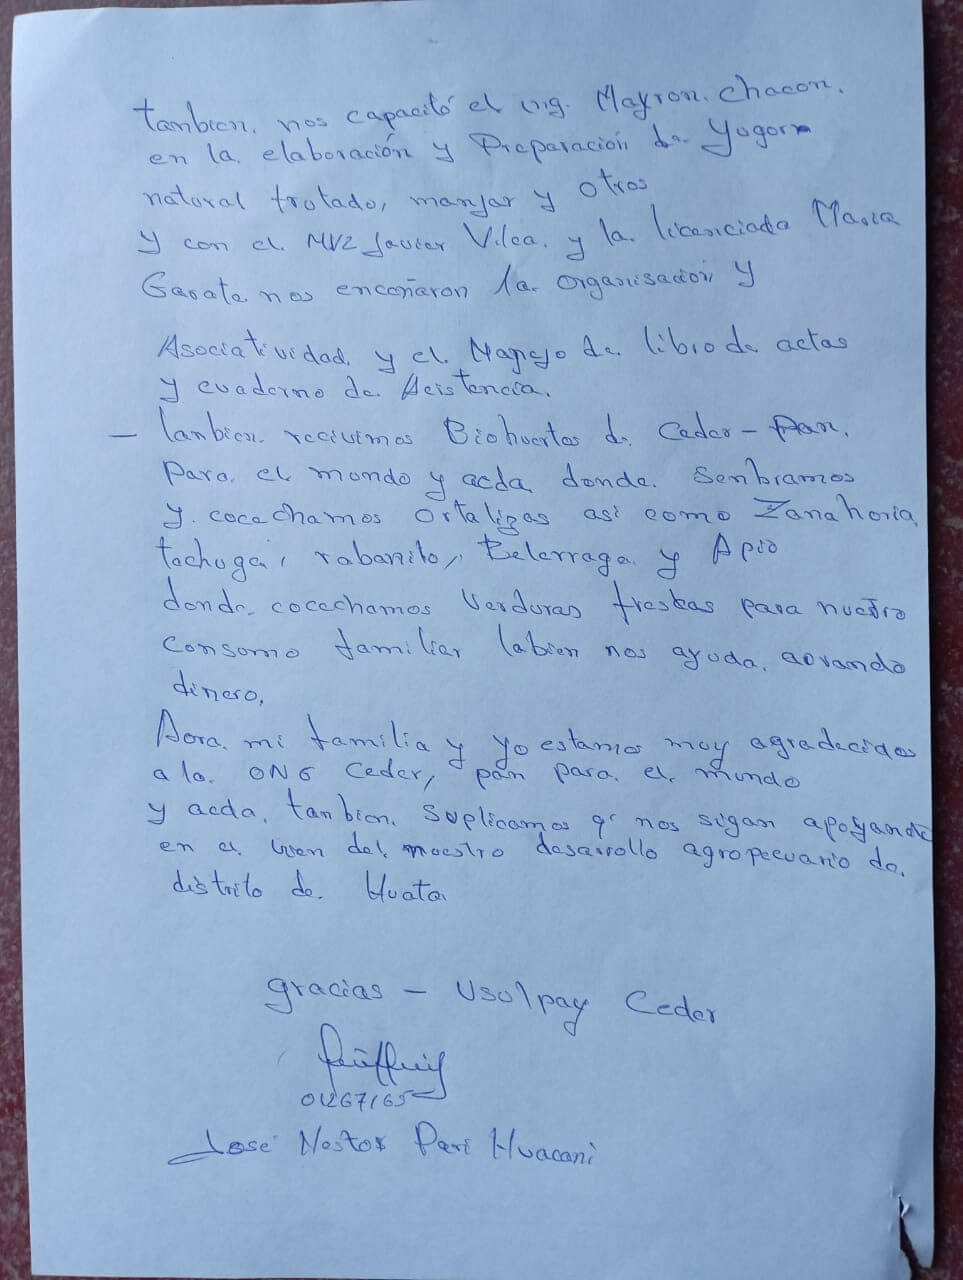 tanbien. nos capacitó el ing. Mayron. chacon.
en la elaboración y Preparación de Yogor
natural frutado, manjar y otros
y con el. MVZ Javier Vilca. y la licenciada Maria
Garate nos enceñaron la organisación y
Asociatividad. y el Manejo de libro de actas
y cuaderno de Acistencia.
- Tanbien. recivimos Biohuertos de Ceder - Pan.
Para el mondo y acda donde. Senbramos
y cocechamos ortalizas asi como Zanahoria
lechuga, rabanito, Betarraga y Apio
donde cocechamos Verduras freskas para nuestro
Consomo familiar tabien nos ayuda. aorando
dinero,
Aora mi familia y yo estamos muy agradecidos
a la ONG Ceder, pan para el mundo
y acda, tanbien. Suplicamos q' nos sigan apoyando
en el bien del nuestro desarrollo agropecuario de.
distrito de Huata
gracias - Usolpay Ceder
01267165
José Nestor Pari Huacani